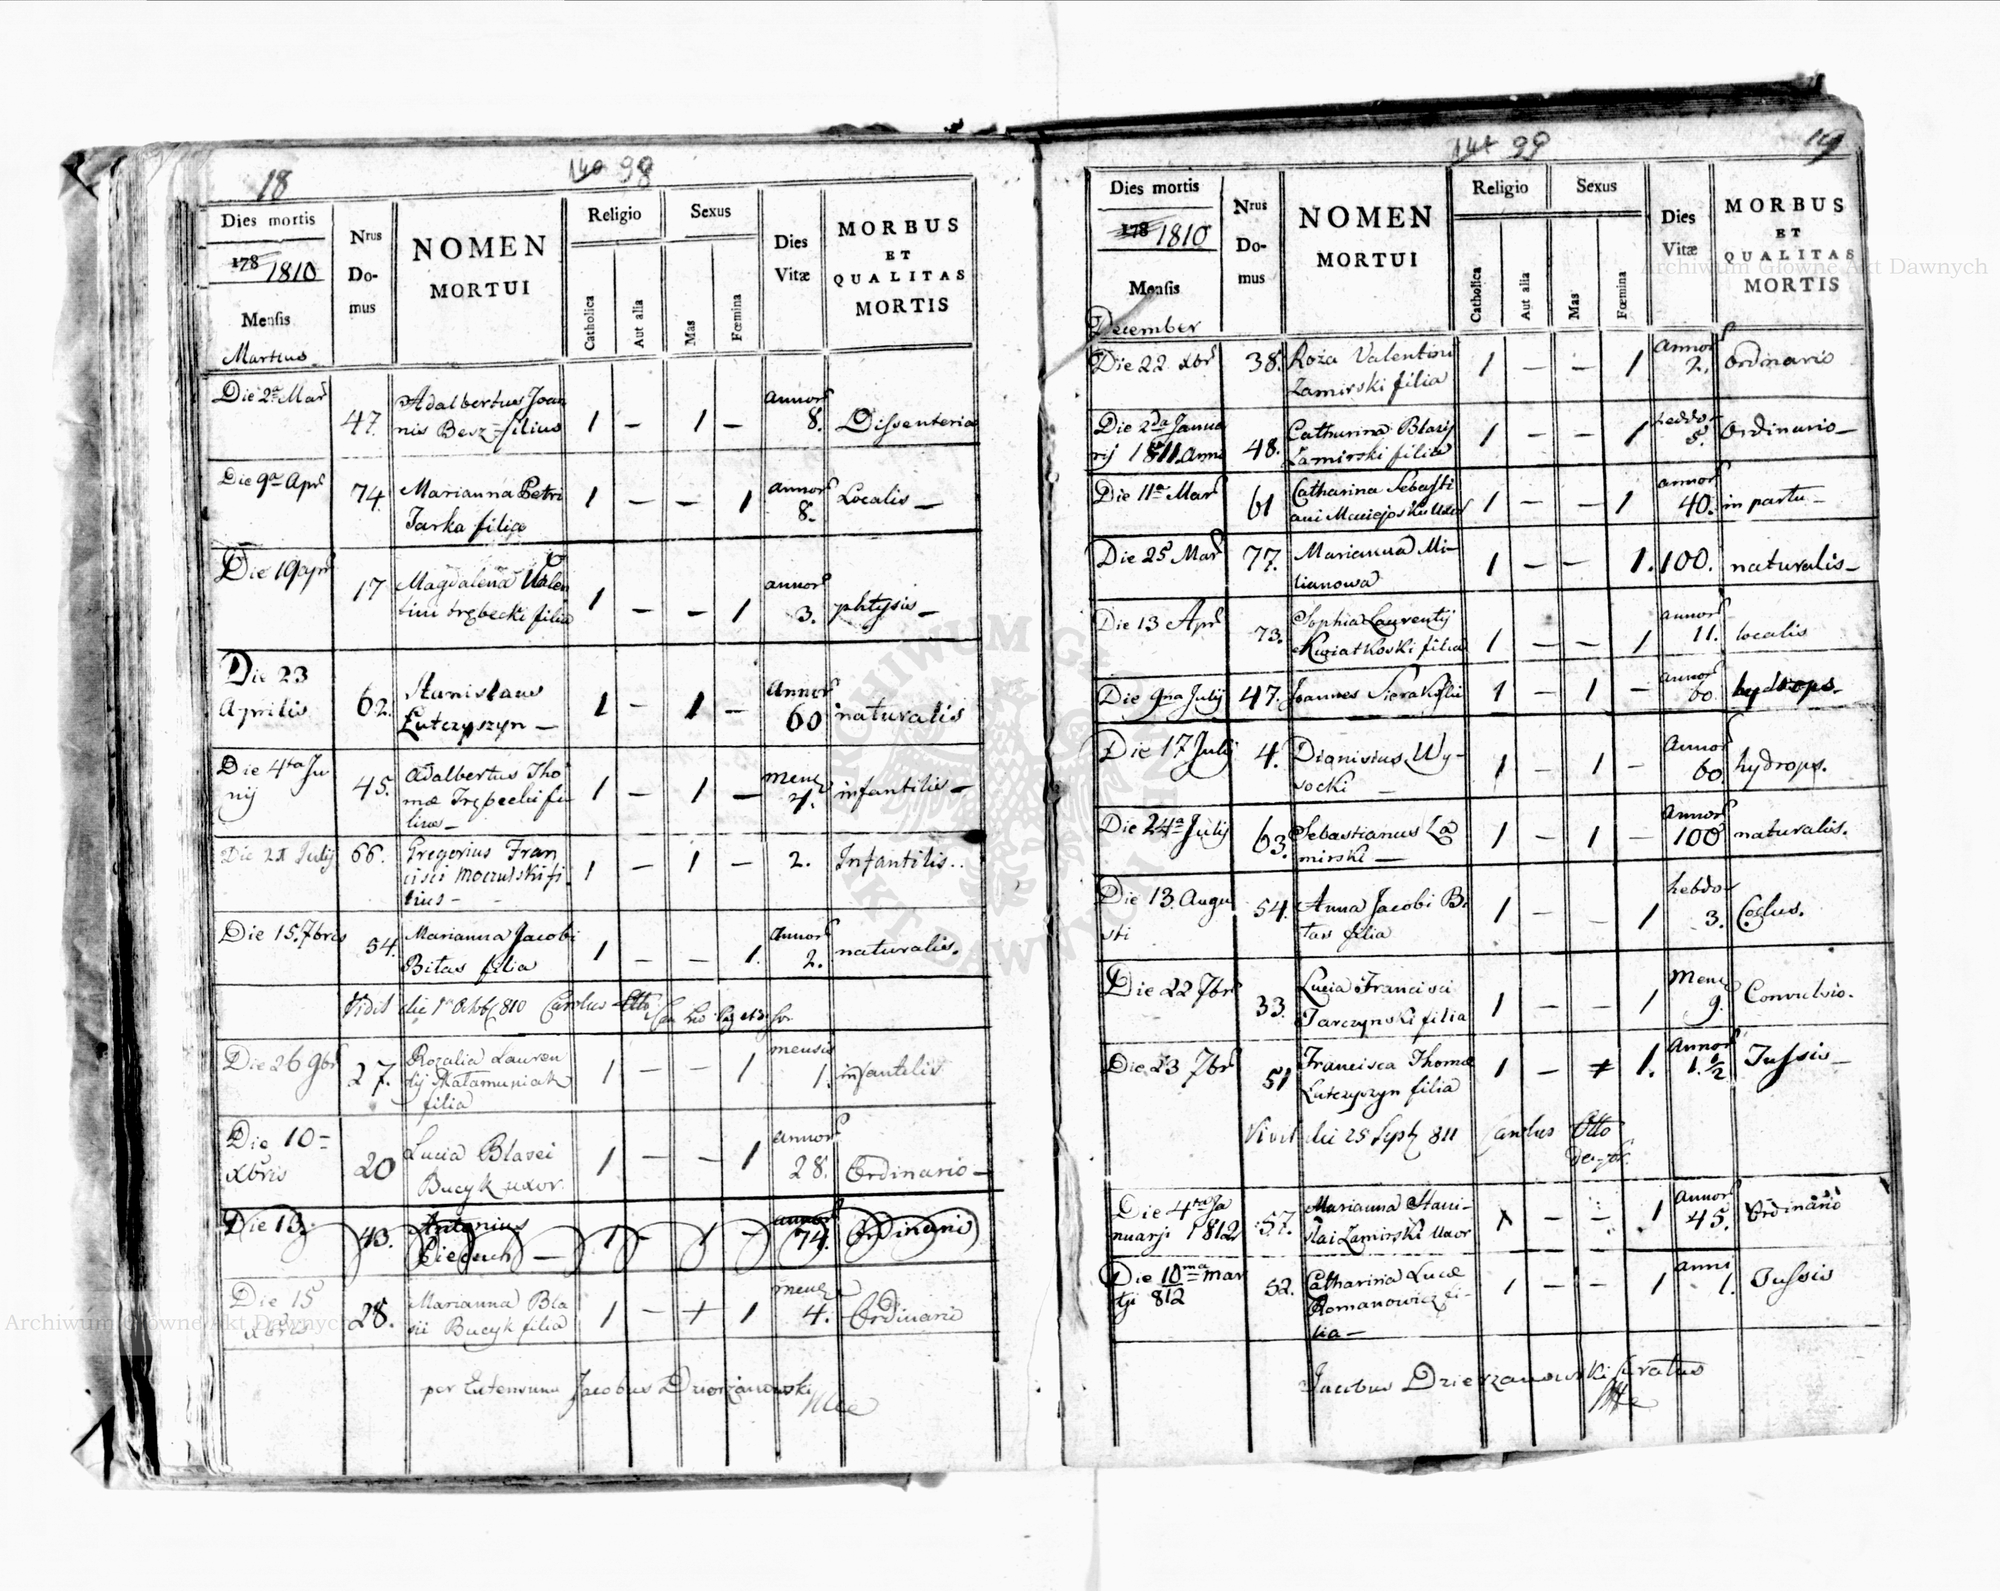 18
140 98
Dies mortis
178 1810
Mensis
Martius
Nrus
Do-
mus
NOMEN
MORTUI
Religio
Catholica
Aut alia
Sexus
Mas
Fœmina
Dies
Vitæ
MORBUS
ET
QUALITAS
MORTIS
Die 2a Mar
47.
Adalbertus Joan
nis Besz filius
1 – 1 –
annor
8.
Dissenteria
Die 9a Apr
74.
Marianna Petri
Jarka filia
1 – – 1
annor
8.
Localis –
Die 19 apr
17
Magdalena Valen
tini Trębecki filia
1 – – 1
annor
3.
phtysis –
Die 23
Aprilis
62.
Stanislaus
Lutczyszyn –
1 – 1 –
Annor
60
naturalis
Die 4ta Ju
nij
45.
Adalbertus Tho
mæ Trębecki fi
lius –
1 – 1 –
mens
4.
infantilis –
Die 21 Julij
66.
Gregorius Fran
cisci Moczulski fi
lius –
1 – 1 –
2.
Infantilis..
Die 15. 7bris
54.
Marianna Jacobi
Bitas filia
1 – – 1.
Annor
2.
naturalis.
Vidit die 1a Octob 810 Carolus Otto
Die 26 9br
27.
Rozalia Lauren
tij Matamuniak
filia
1 – – 1
mensis
1.
infantilis
Die 10
xbris
20
Lucia Blasei
Bucyk uxor.
1 – – 1
annor
28.
Ordinario –
Die 13.
43.
Antonius
Piecuch –
1 – 1 –
annor
74.
Ordinario
Die 15
xbris
28.
Marianna Bla
sii Bucyk filia
1 – + 1
mens
4.
Ordinario
per Extensum Jacobus Dzierżanowski
mce
19
141 99
Dies mortis
178 1810
Mensis
December
Nrus
Do-
mus
NOMEN
MORTUI
Religio
Catholica
Aut alia
Sexus
Mas
Fœmina
Dies
Vitæ
MORBUS
ET
QUALITAS
MORTIS
Die 22 xbr
38.
Roża Valentini
Zamirski filia
1 – – 1
Annor
2.
Ordinario
Die 2da Janua
rij 1811 Anni
48.
Catharina Blasij
Zamirski filia
1 – – 1
hebdo
5.
Ordinario –
Die 11a Mar
61
Catharina Sebasti
ani Maciejoski Uxor
1 – – 1
annor
40.
in partu –
Die 25 Mar
77.
Marianna Mi-
lianowa
1 – – 1.
100.
naturalis –
Die 13 Apr
73.
Sophia Laurentij
Kwiatkoski filia
1 – – 1
annor
11.
localis
Die 9na Julij
47.
Joannes
1 – 1 –
annor
60.
hydrops.
Die 17 Julij
4.
Dionisius Wy-
socki –
1 – 1 –
Annor
60.
hydrops.
Die 24a Julij
63.
Sebastianus Za
mirski –
1 – 1 –
Annor
100
naturalis.
Die 13. Augu
sti
54.
Anna Jacobi Bi
tas filia
1 – – 1
hebdo
3.
Die 22 7br
33.
Lucia Francisci
Tarczynski filia
1 – – 1
Mens
9.
Convulsio.
Die 23 7br
51
Francisca Thomæ
Lutczyszyn filia
1 – 1.
Annor
1. 1/2
Tussis –
Vidit die 25 Sept 811 Carolus Otto
Die 4ta Ja
nuarji 1812
57.
Marianna Stani-
slai Zamirski Uxor
1 – – 1
Annor
45.
Ordinario
Die 10ma Mar
tji 812
52.
Catharina Lucæ
Romanowicz fi-
lia –
1 – – 1
anni
1.
Tussis
Jacobus Dzierzanowski Curatus